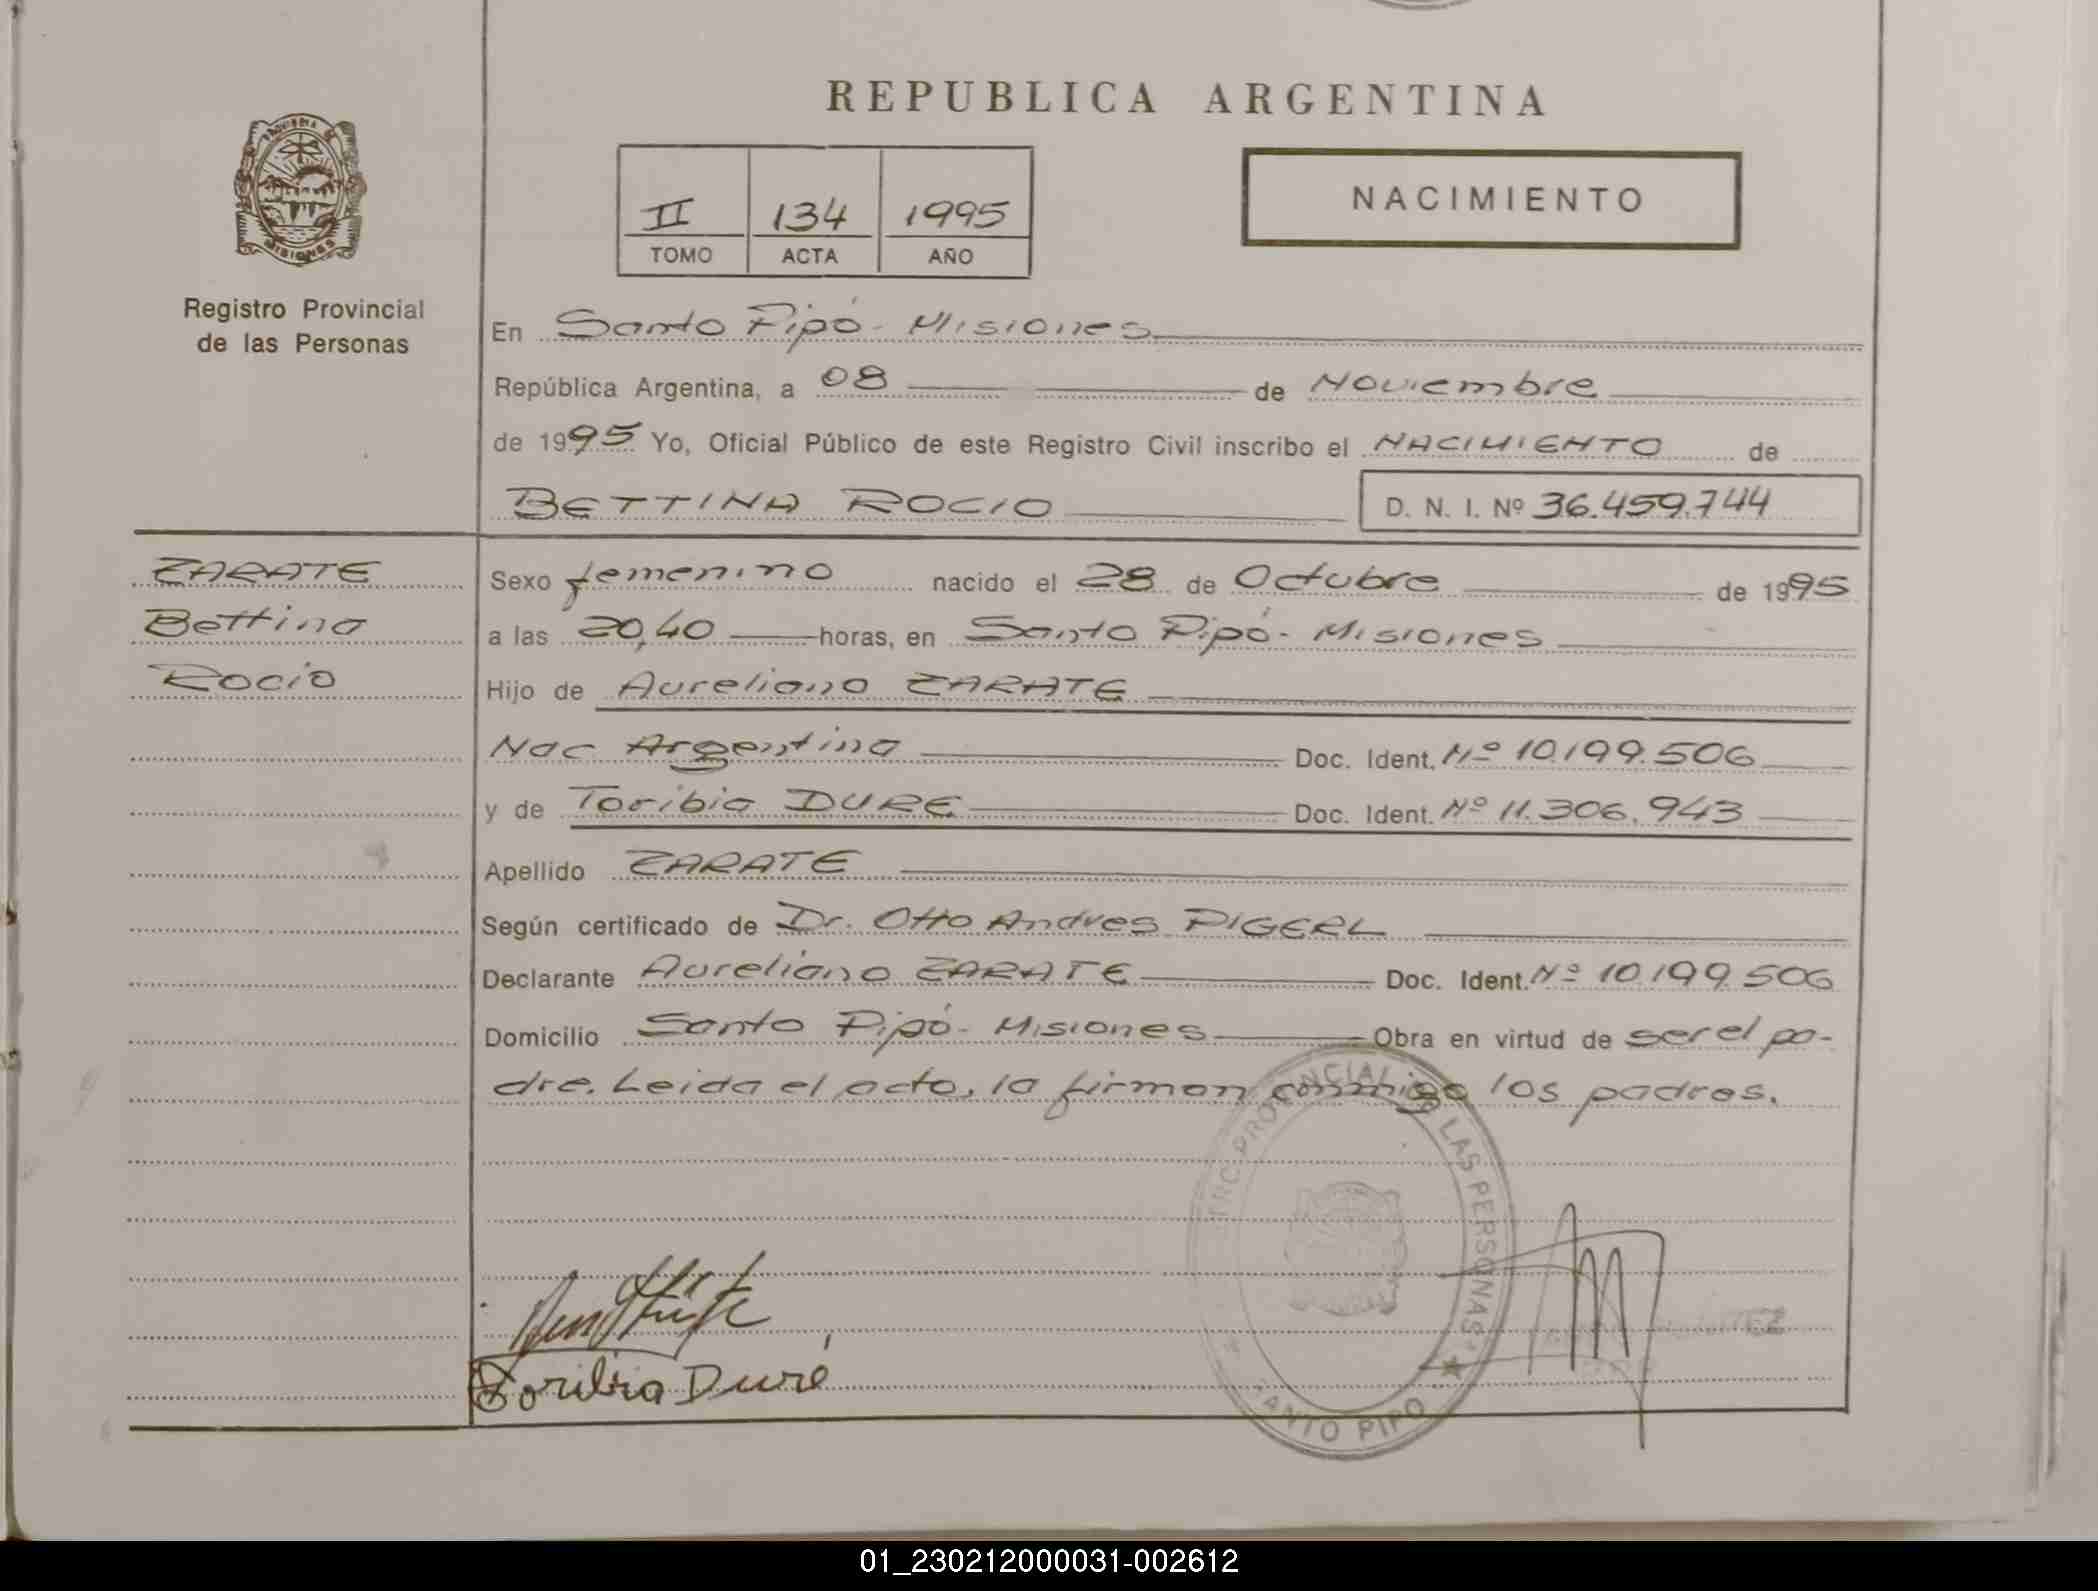 REPUBLICA ARGENTINA
PROVINCIA DE
MISIONES
Registro Provincial
de las Personas
II 134 1995
TOMO ACTA AÑO
NACIMIENTO
En Santo Pipó - Misiones
República Argentina, a 08 de Noviembre
de 1995 Yo, Oficial Público de este Registro Civil inscribo el NACIMIENTO de
BETTINA ROCIO D. N. I. Nº 36.459.744
ZARATE
Bettina
Rocio
Sexo femenino nacido el 28 de Octubre de 1995
a las 20,40 horas, en Santo Pipó - Misiones
Hijo de Aureliano ZARATE
Nac. Argentina Doc. Ident. Nº 10.199.506
y de Toribia DURE Doc. Ident. Nº 11.306.943
Apellido ZARATE
Según certificado de Dr. Otto Andres PIGERL
Declarante Aureliano ZARATE Doc. Ident. Nº 10.199.506
Domicilio Santo Pipó - Misiones Obra en virtud de ser el pa-
dre. Leida el acta, la firman conmigo los padres.
PROVINCIAL LAS PERSONAS
SANTO PIPO
Toribia Duré
01_230212000031-002612